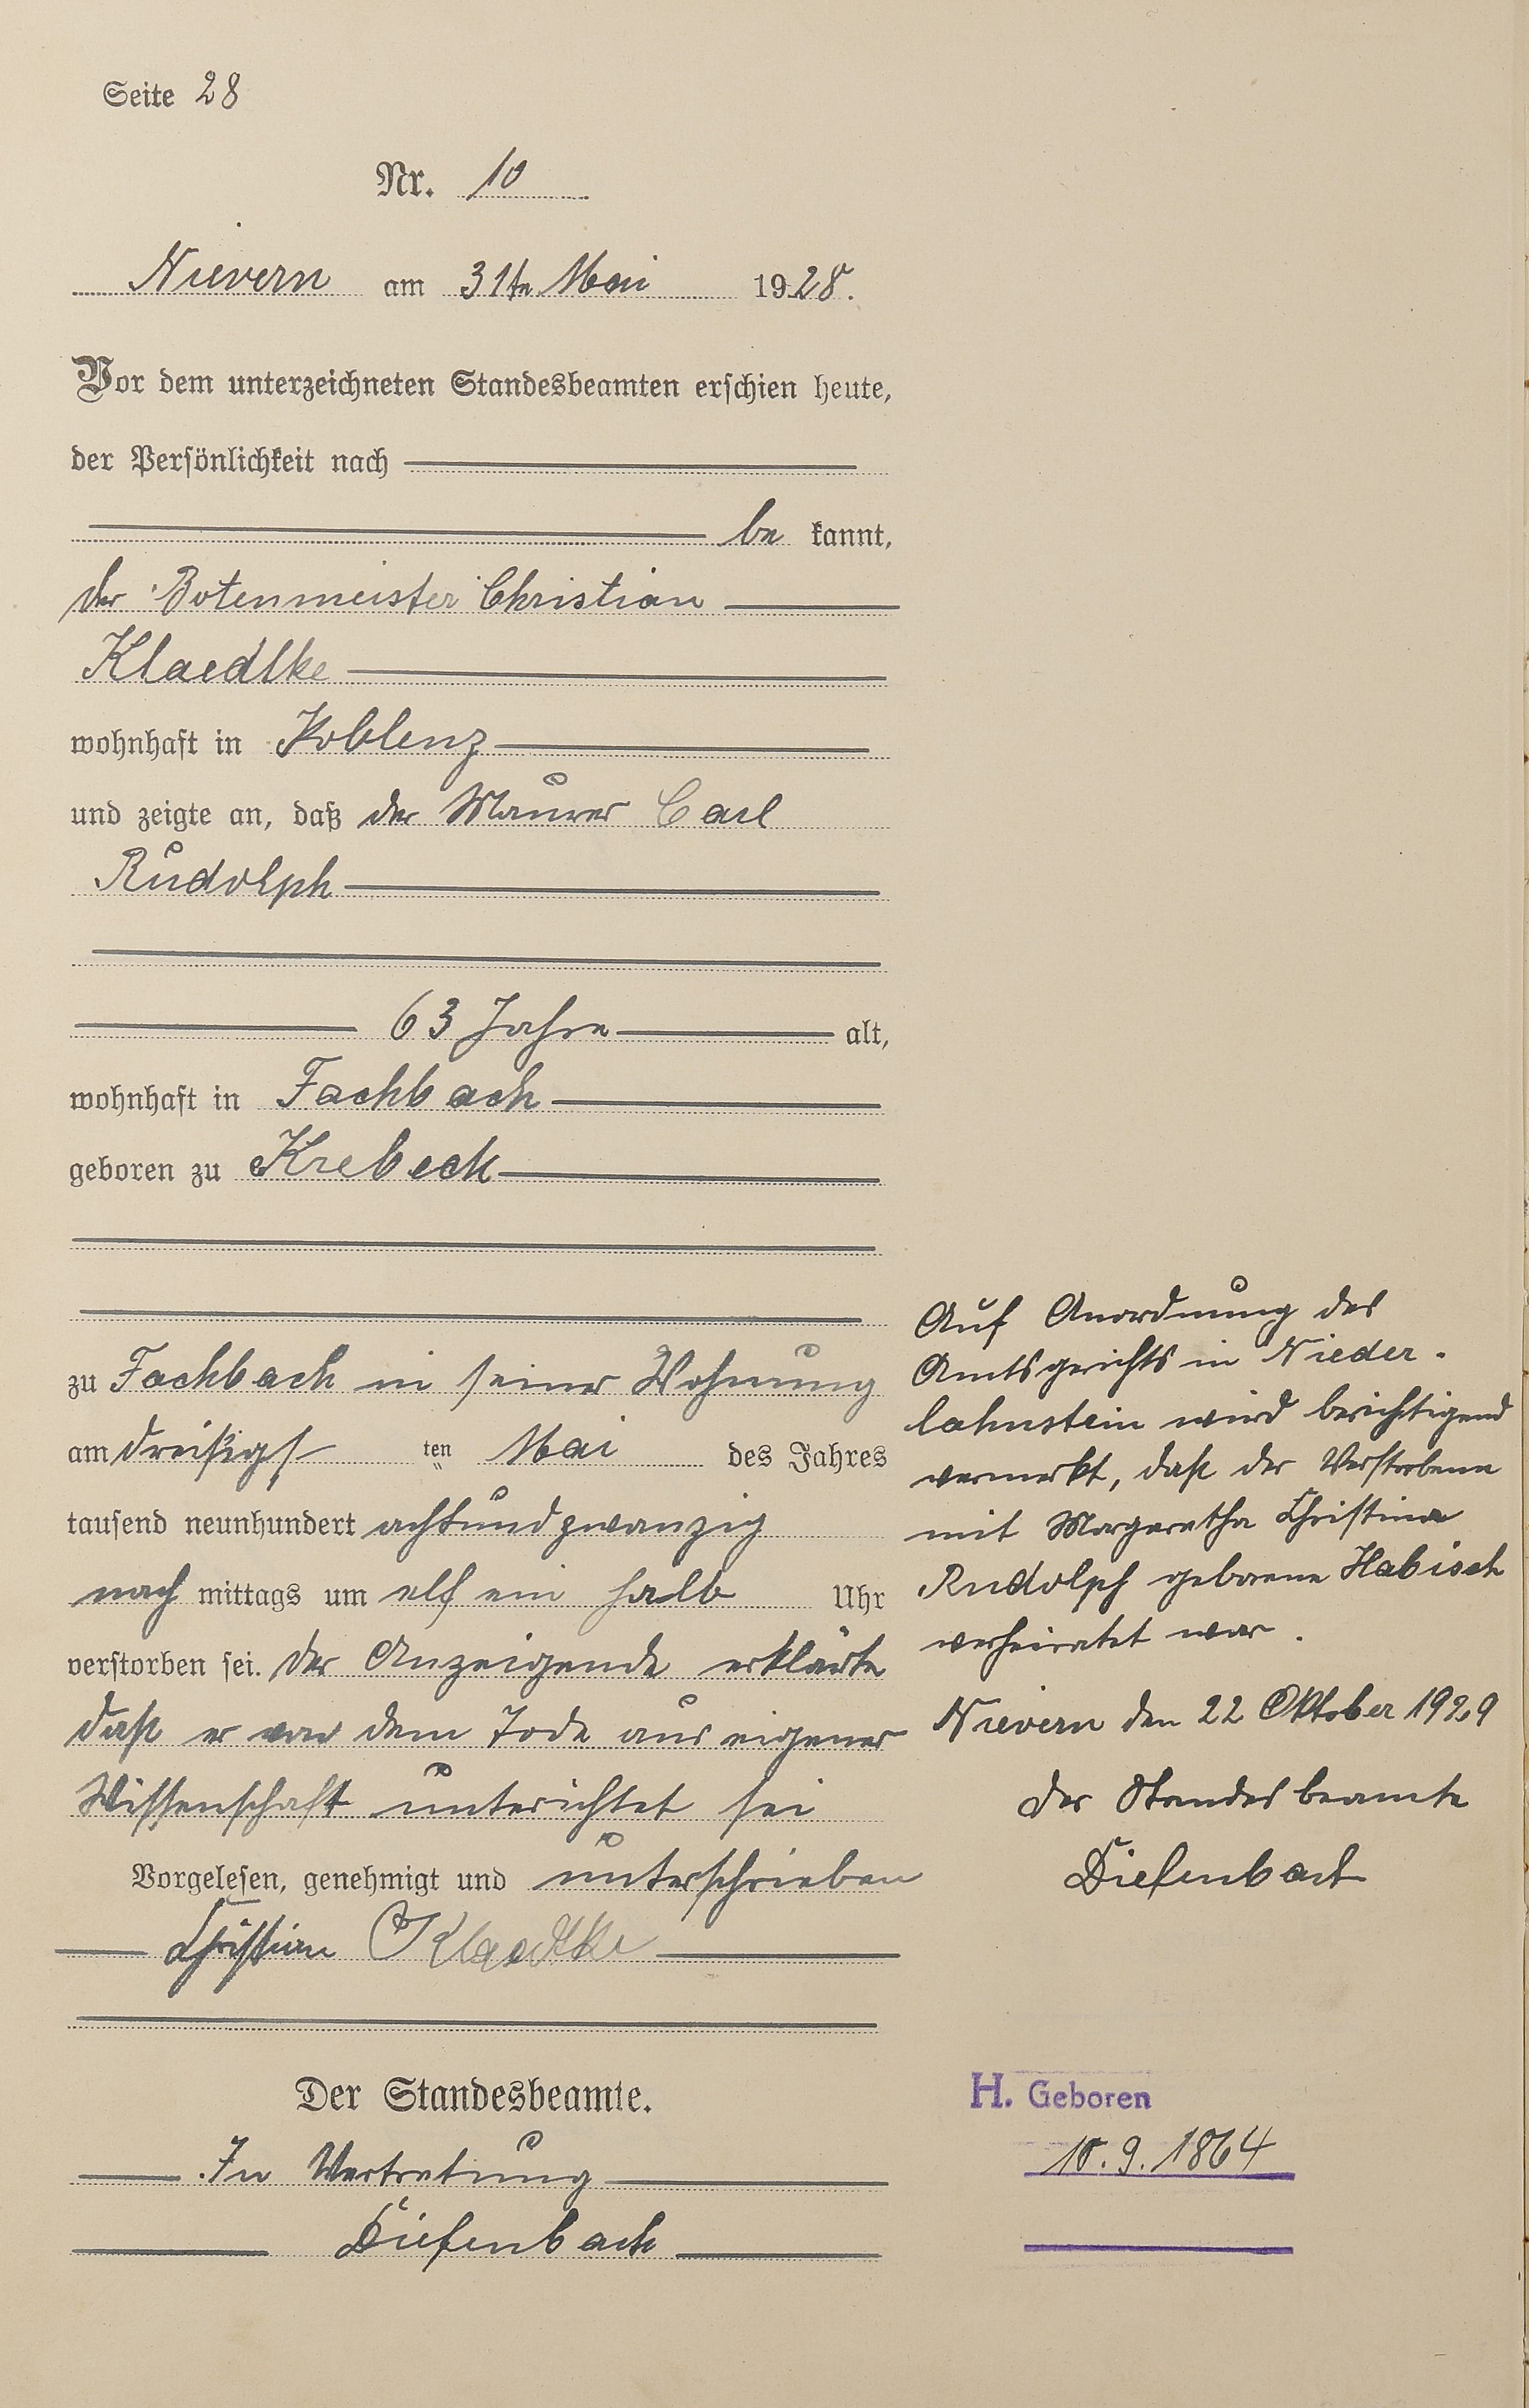 Seite 28
Nr. 10
Nievern am 31te Mai 1928.
Vor dem unterzeichneten Standesbeamten erschien heute,
der Persönlichkeit nach
be kannt,
der Botenmeister Christian
Klaedtke
wohnhaft in Koblenz
und zeigte an, daß der Maurer Carl
Rudolph
63 Jahre alt,
wohnhaft in Fachbach
geboren zu Krebeck
zu Fachbach in seiner Wohnung
am dreißigs ten Mai des Jahres
tausend neunhundert achtundzwanzig
nach mittags um elf ein halb Uhr
verstorben sei. Der Anzeigende erklärte
daß er von dem Tode aus eigener
Wissenschaft unterichtet sei
Vorgelesen, genehmigt und unterschrieben
Christian Klaedtke
Der Standesbeamte.
In Vertretung
Diefenbach
Auf Anordnung des
Amtsgerichts in Nieder-
lahnstein wird berichtigend
vermerkt, daß der Verstorbene
mit Margaretha Christina
Rudolph geborene Habisch
verheiratet war.
Nievern den 22 Oktober 1929
Der Standesbeamte
Diefenbach
H. Geboren
10.9.1864